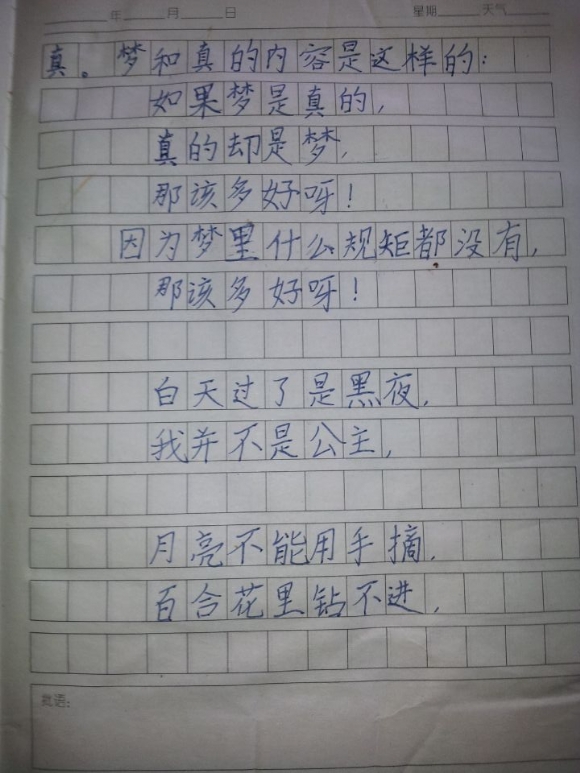 年 月 日 星期 天气
真。梦和真的内容是这样的：
如果梦是真的，
真的却是梦，
那该多好呀！
因为梦里什么规矩都没有，
那该多好呀！
白天过了是黑夜，
我并不是公主，
月亮不能用手摘，
百合花里钻不进，
批语：